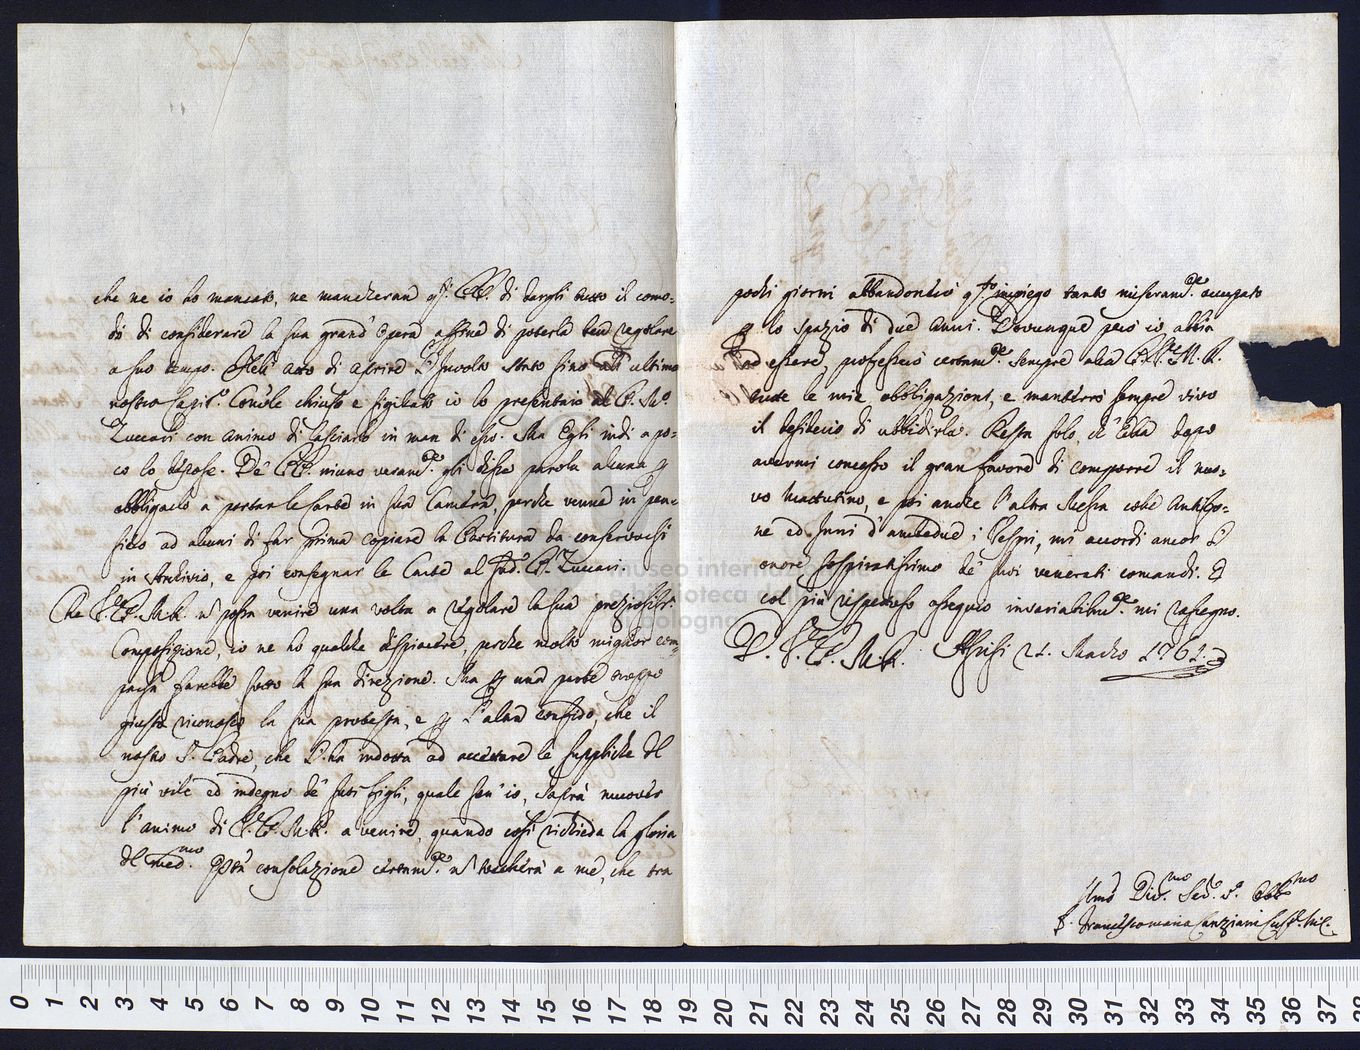 che ne io ho mancato, ne mancheran qsti. PP. di dargli tutto il como-
do di considerare la sua grand'Opera affine di poterla ben regolare
a suo tempo. Nell'atto di aprire l'Involto stato fino all'ultimo
nostro Capit.º Conv.le chiuso e sigillato io lo presentai al P. M.º
Zuccari con animo di lasciarlo in man di esso. Ma Egli indi a po-
co lo depose. De' PP. niuno veram.te gli disse parola alcuna p
obbligarlo a portar le Carte in sua Camera, perche venne in pen-
siero ad alcuni di far prima copiare la Partitura da conservarsi
in Archivio, e poi consegnar le Carte al sud.º P. Zuccari.
Che V. P. M. R. nō possa venire una volta a regolare la sua preziosiss.
Composizione, io ne ho qualche dispiacere, perche molto miglior com-
parsa farebbe sotto la sua direzione. Ma p una parte troppo
giusta riconosco la sua protesta, e p l'altra confido, che il
nostro S. Padre, che l'ha indotta ad accettare le suppliche del
più vile ed indegno de' suoi figli, quale son' io, saprà muover
l'animo di V. P. M. R. a venire, quando così richieda la gloria
del med.mo Questa consolazione certam.te nō toccherà a me, che tra
pochi giorni abbandonerò q.to impiego tanto miseram.te occupato
p lo spazio di due anni. Dovunque però io abbia
ad essere, professerò certam.te sempre alla P. V. M. R.
tutte le mie obbligazioni, e manterrò sempre vivo
il desiderio di ubbidirla. Resta solo, ch'Ella dopo
avermi concesso il gran favore di comporre il nuo-
vo Mattutino, e poi anche l'altra Messa colle Antifo-
ne ed Inni d'ambedue i Vespri, mi accordi ancor l'
onore sospiratissimo de' suoi venerati comandi. E
col più rispettoso ossequio invariabilm.te mi rassegno.
D. V. P. M. R. Assisi 21. Marzo 1761.
Umō Div.mo Se.º v.º Obb.mo
F. Francescomaria Canziani Cust. Min. C.
museo internazionale
e biblioteca della musica
di bologna
0 1 2 3 4 5 6 7 8 9 10 11 12 13 14 15 16 17 18 19 20 21 22 23 24 25 26 27 28 29 30 31 32 33 34 35 36 37 38